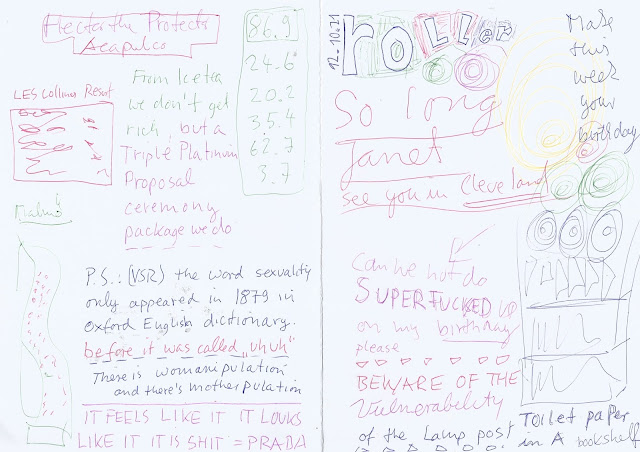 Hector the Protects
Acapulco
LES Collines Resort
From Icetea
we don't get
rich, but a
Triple Platinum
Proposal
ceremony
package we do
86.9
24.6
20.2
35.4
62.7
3.7
P.S.: (VSR) the word sexuality
only appeared in 1879 in
Oxford English dictionary.
before it was called „uhuh"
There is womanipulation
and there's motherpulation
IT FEELS LIKE IT IT LOOKS
LIKE IT IT IS SHIT = PRADA
12.10.21
roller
So long
Janet
see you in Cleveland
Make
this
week
your
birthday
Can we not do
SUPERFUCKED UP
on my birthday
please
BEWARE OF THE
Vulnerability
of the Lamp post
Toilet paper
in A bookshelf